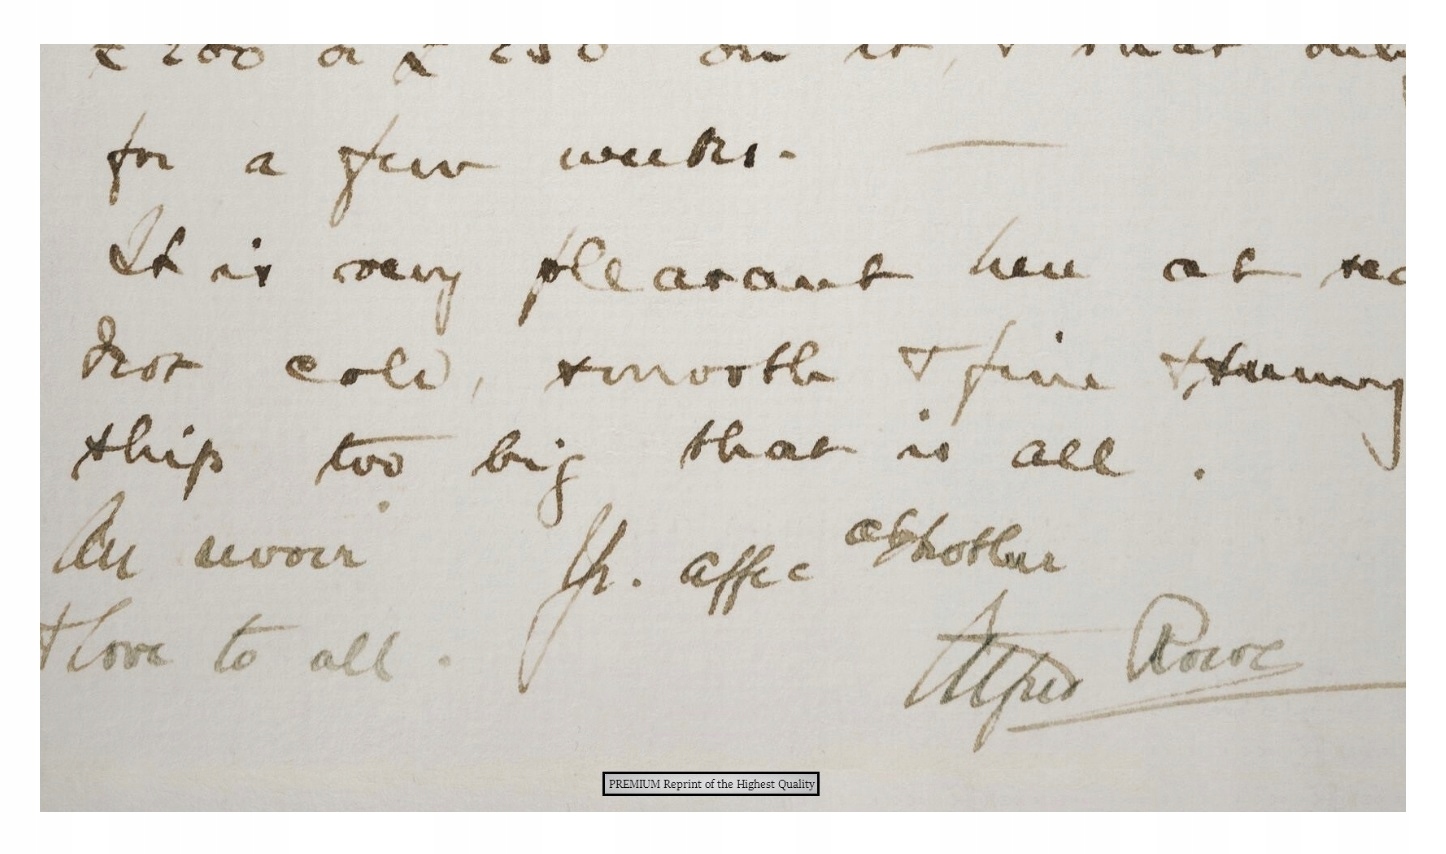 £200 or £250 on it, & that only
for a few weeks.
It is very pleasant here at sea
Not cold, smooth & fine & sunny
ship too big that is all.
Au revoir Yr. affec brother
& love to all. Alfred Rowe
PREMIUM Reprint of the Highest Quality